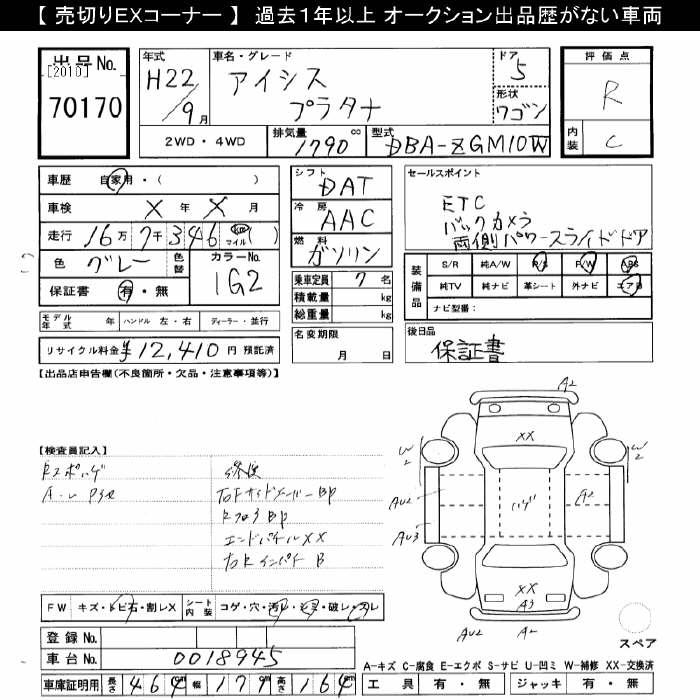 【 売切りEXコーナー 】 過去１年以上 オークション出品歴がない車両
出品 No.
[2010]
70170
年式 H22 /9月
車名・グレード アイシス プラタナ
ドア 5
形状 ワゴン
評価点 R
内装 C
2WD・4WD
排気量 1790 cc
型式 DBA-ZGM10W
車歴 自家用・( )
車検 X 年 X 月
走行 16万 7千 346 km マイル ( )
色 グレー 色替
カラーNo. 1G2
保証書 有・無
シフト DAT
冷房 AAC
燃料 ガソリン
乗車定員 7 名
積載量 kg
総重量 kg
セールスポイント
ETC
バックカメラ
両側パワースライドドア
装備品 S/R 純A/W P/S P/W ABS
純TV 純ナビ 革シート 外ナビ エアB
ナビ型番:
モデル年式 年 ハンドル 左・右 ディーラー・並行
リサイクル料金 ¥12,410 円 預託済
名変期限 月 日
後日品
保証書
【出品店申告欄(不良箇所・欠品・注意事項等)】
【検査員記入】
修復
右Fサイドメンバー BP
Rフロア BP
エンドパネル XX
右Rインパネ B
A2
XX
W2
W2
AU2
AU3
ハゲ
A2
XX
A3
AU2
A2
スペア
FW キズ・トビ石・割レX
シート内装 コゲ・穴・汚レ・シミ・破レ・スレ
登録 No.
車台 No. 0018945
車庫証明用 長さ 464 幅 179 高さ 164
A-キズ C-腐食 E-エクボ S-サビ U-凹ミ W-補修 XX-交換済
工具 有・無 ジャッキ 有・無